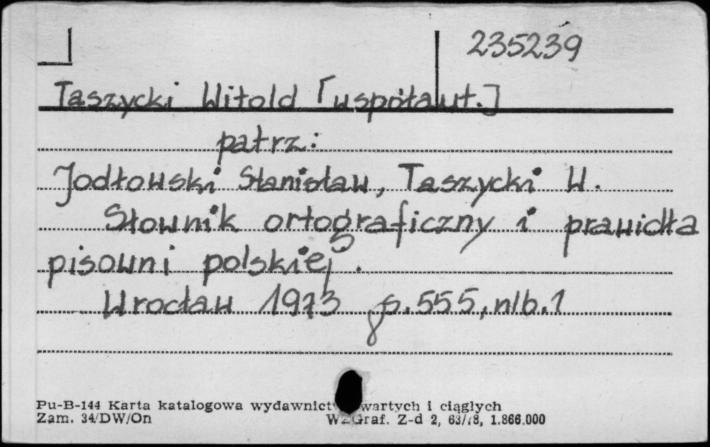 235239
Taszycki Witold [współaut.]
patrz:
Jodłowski Stanisław, Taszycki W.
Słownik ortograficzny i prawidła
pisowni polskiej.
Wrocław 1973 s. 555, nlb. 1
Pu-B-144 Karta katalogowa wydawnict wartych i ciągłych
Zam. 34/DW/On Graf. Z-d 2, 63/78, 1.866.000